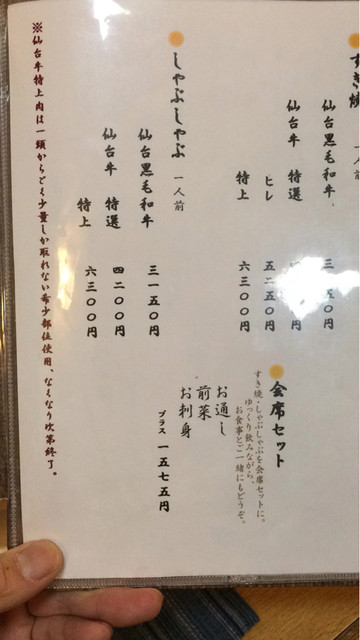 すき焼 一人前
仙台黒毛和牛
仙台牛 特選
ヒレ 五二五〇円
特上 六三〇〇円
会席セット
すき焼・しゃぶしゃぶを会席セットに。
ゆっくり飲みながら、
お食事とご一緒にもどうぞ。
お通し
前菜
お刺身
プラス 一五七五円
しゃぶしゃぶ 一人前
仙台黒毛和牛 三一五〇円
仙台牛 特選 四二〇〇円
特上 六三〇〇円
※仙台牛特上肉は一頭からごく少量しか取れない希少部位使用、なくなり次第終了。